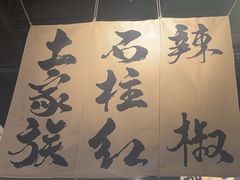 土家族
石柱红
辣椒